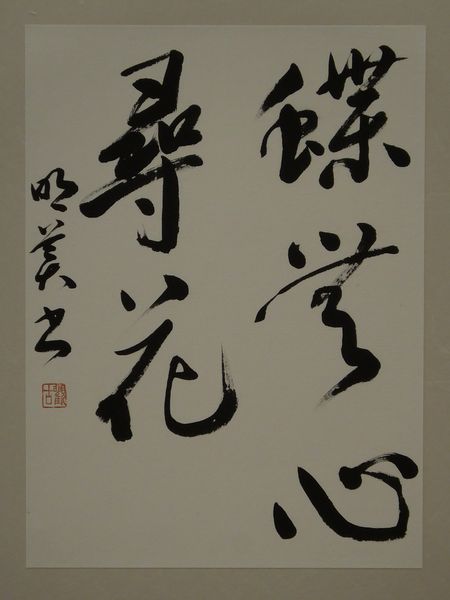 蝶無心
尋花
明美書